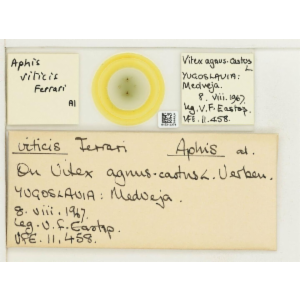 Aphis
viticis
Ferrari
Al
Vitex agnus-castus
L
YUGOSLAVIA:
Medveja.
8. viii. 1967.
Leg. V.F. Eastop.
VFE. 11,458.
viticis Ferrari Aphis al.
On Vitex agnus-castus L. Verben.
YUGOSLAVIA: Medveja.
8 viii. 1967.
Leg. V. F. Eastop
VFE. 11,458.